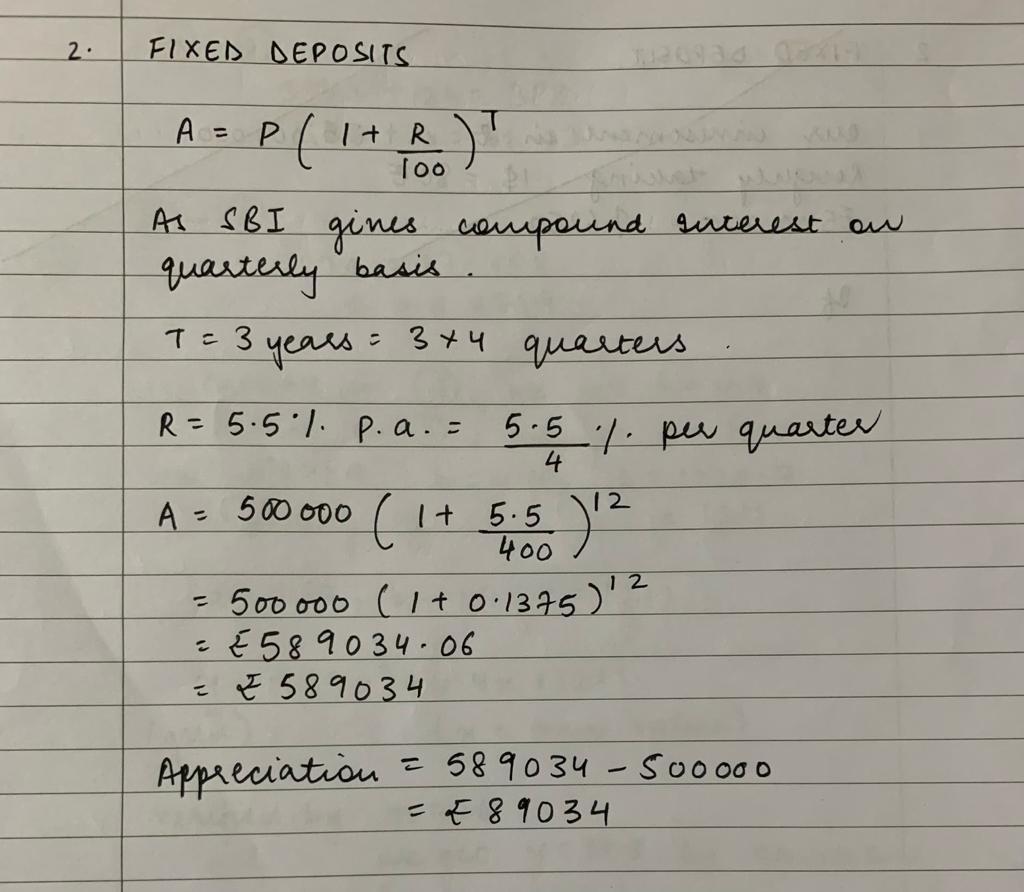 2. FIXED DEPOSITS
A = P ( 1 + R/100 )^T
As SBI gives compound interest on
quarterly basis.
T = 3 years = 3 × 4 quarters.
R = 5.5 % p.a. = 5.5/4 % per quarter
A = 500 000 ( 1 + 5.5/400 )^12
= 500 000 ( 1 + 0.1375 )^12
= ₹ 589034.06
= ₹ 589034
Appreciation = 589034 - 500000
= ₹ 89034